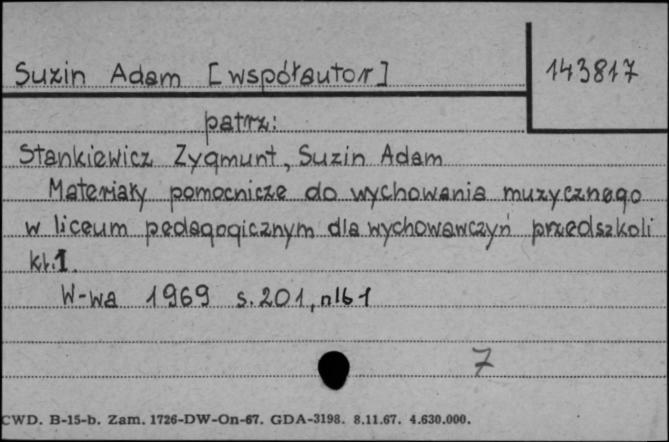 Suzin Adam [współautor]
143817
patrz:
Stankiewicz Zygmunt, Suzin Adam
Materiały pomocnicze do wychowania muzycznego
w liceum pedagogicznym dla wychowawczyń przedszkoli
kl.1.
W-wa 1969 s. 201, nlb 1
7
CWD. B-15-b. Zam. 1726-DW-On-67. GDA-3198. 8.11.67. 4.630.000.